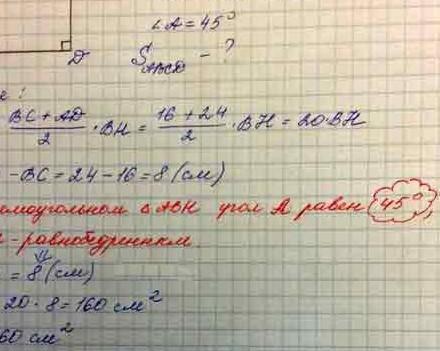 ∠A = 45°
D
S_ABCD - ?
е:
BC + AD / 2 · BH = 16 + 24 / 2 · BH = 20·BH
- BC = 24 - 16 = 8 (см)
ямоугольном △ ABH угол A равен 45°
- равнобедренным.
⇓
= 8 (см)
20 · 8 = 160 см²
60 см²